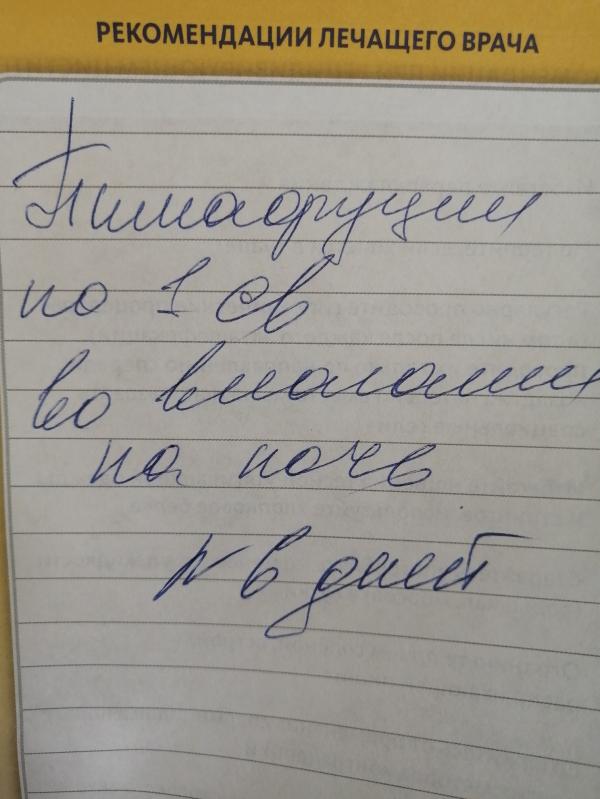 РЕКОМЕНДАЦИИ ЛЕЧАЩЕГО ВРАЧА
Пимафуцин
по 1 св
во влагалищ
на ночь
N 6 дней